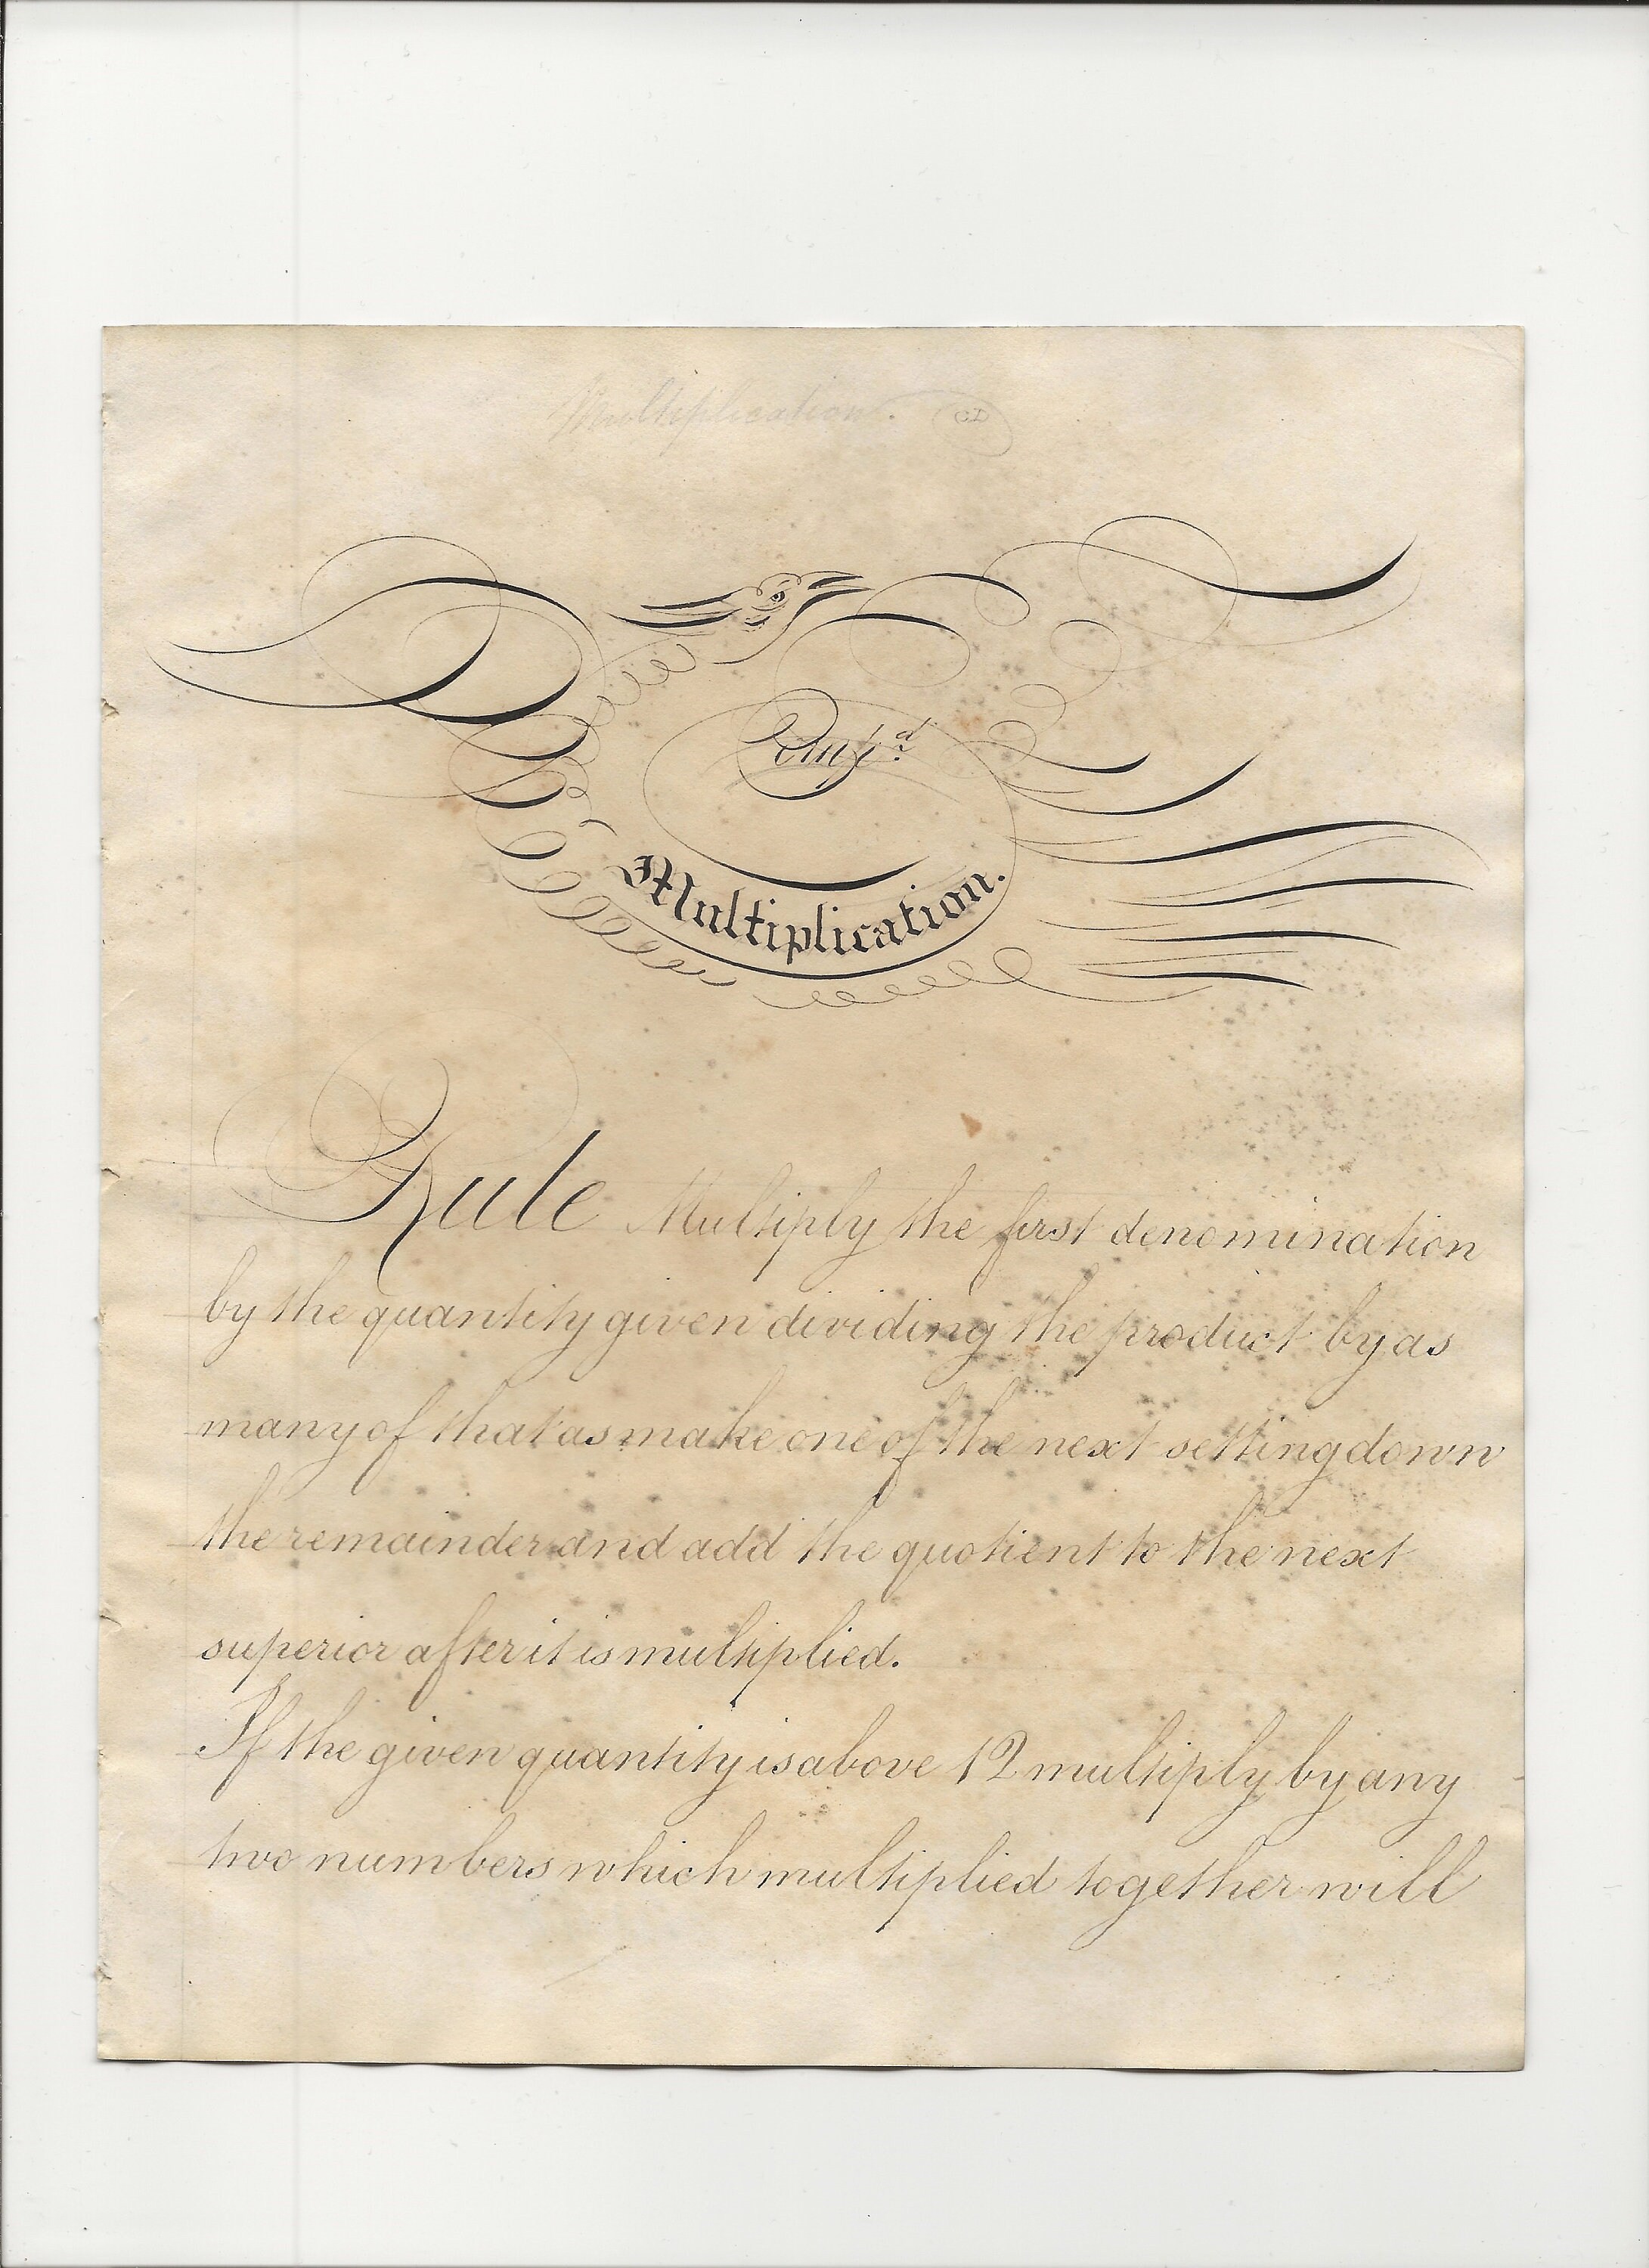 Multiplication.
Comp.d
Multiplication.
Rule Multiply the first denomination
by the quantity given dividing the product by as
many of that as make one of the next setting down
the remainder and add the quotient to the next
superior after it is multiplied.
If the given quantity is above 12 multiply by any
two numbers which multiplied together will